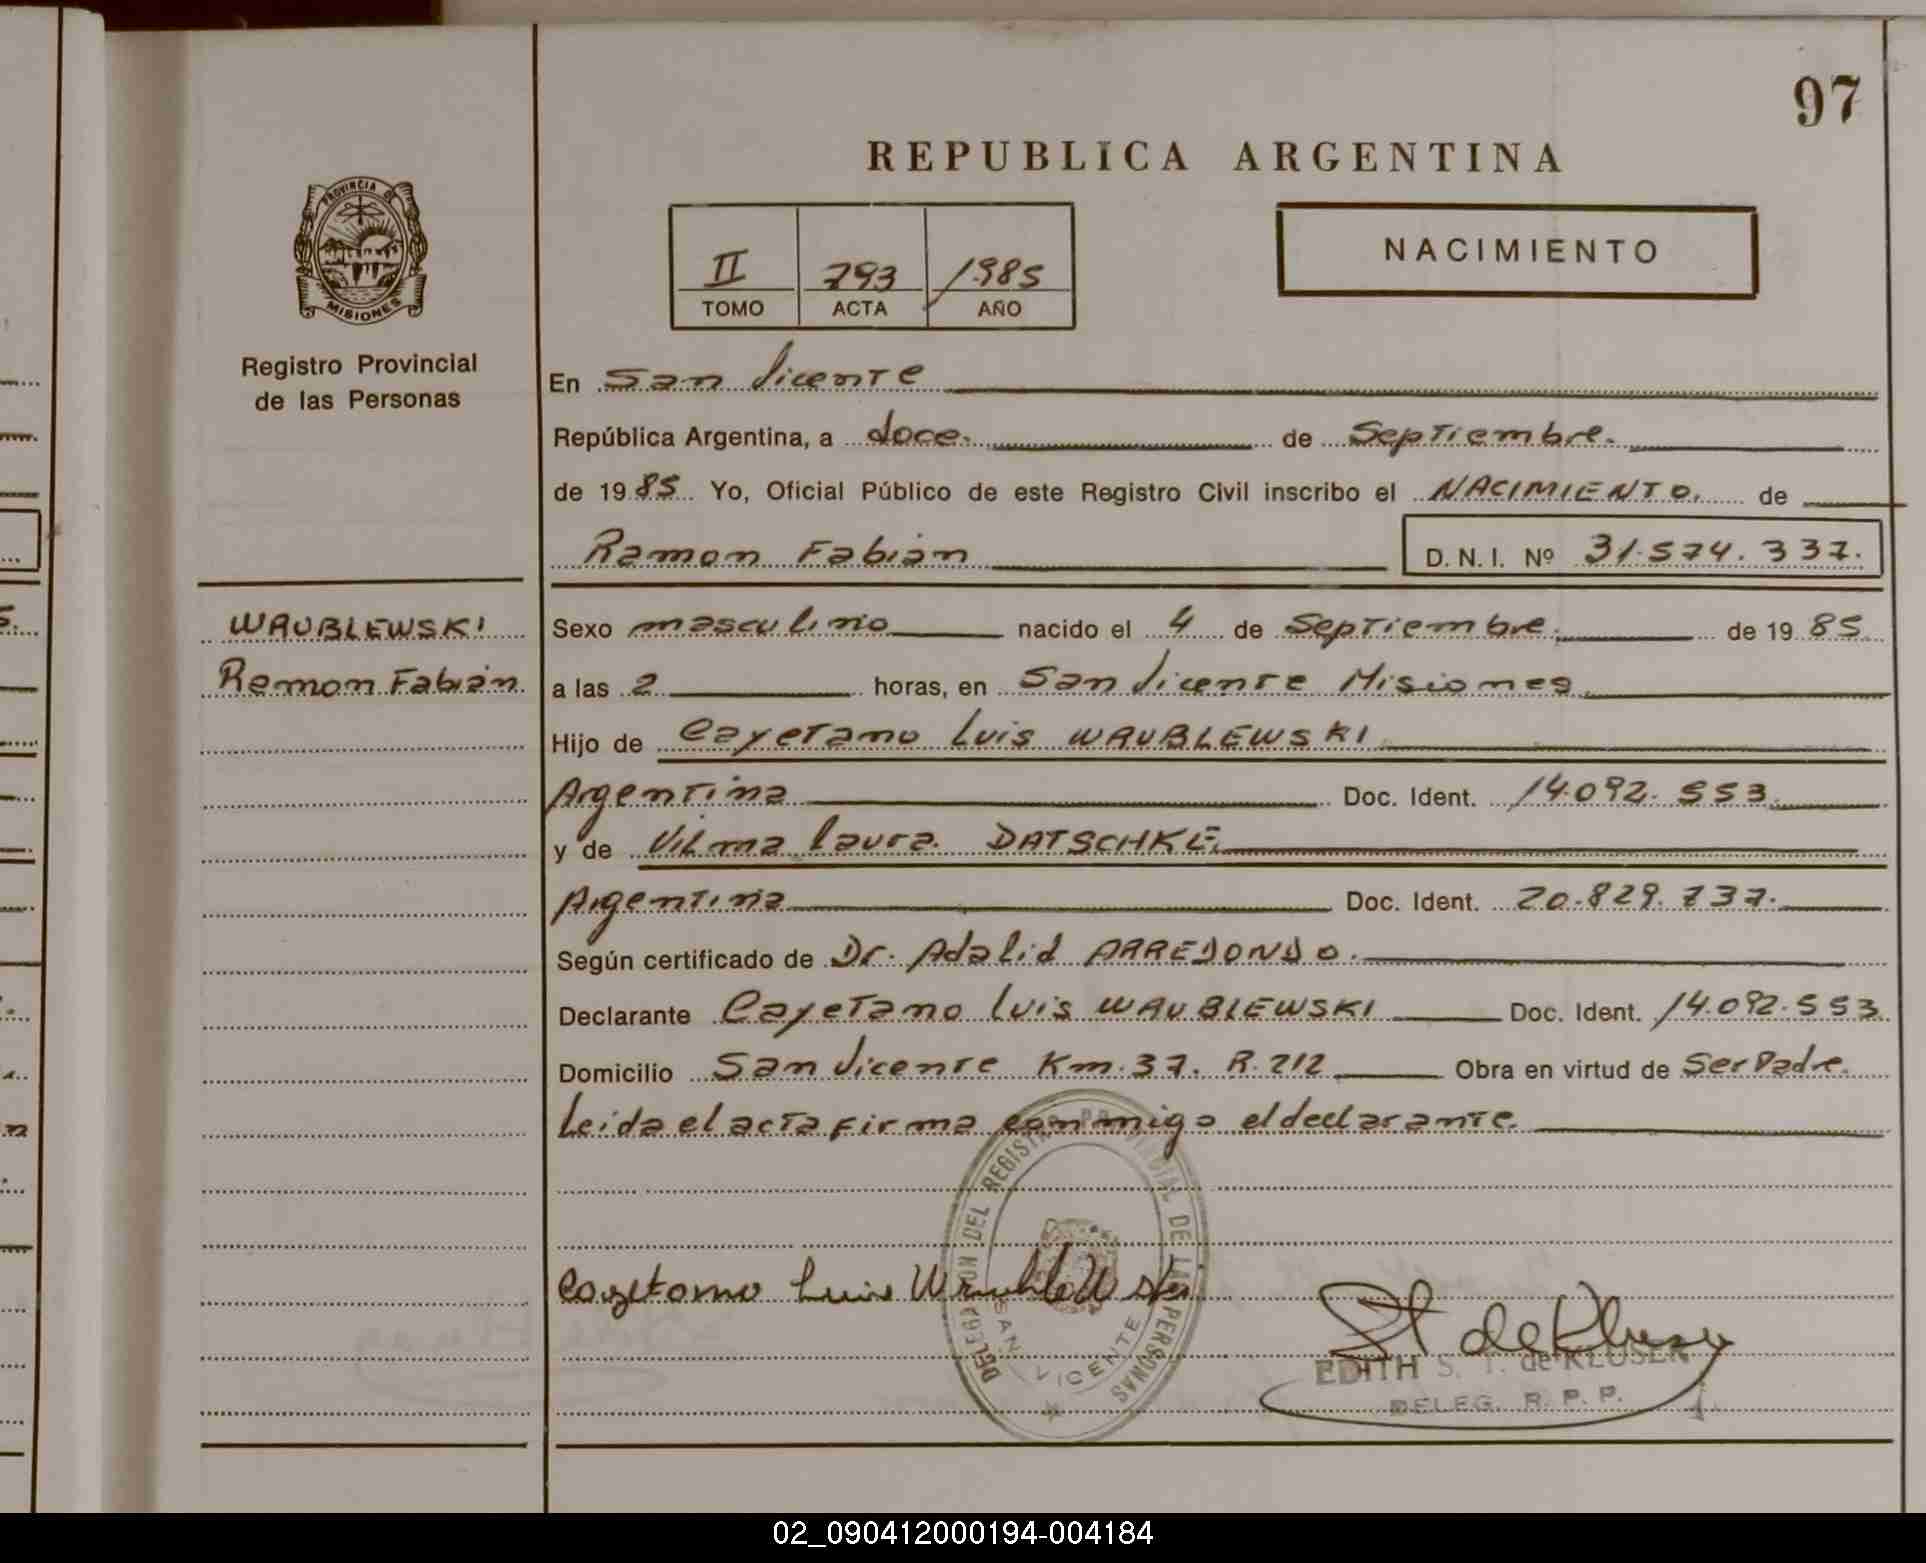 97
REPUBLICA ARGENTINA
PROVINCIA DE
MISIONES
Registro Provincial
de las Personas
II 793 1985
TOMO ACTA AÑO
NACIMIENTO
En San Vicente
República Argentina, a doce. de Septiembre.
de 1985 Yo, Oficial Público de este Registro Civil inscribo el NACIMIENTO. de
Ramon Fabián D.N.I. Nº 31.574.337.
WRUBLEWSKI
Ramon Fabián
Sexo masculino nacido el 4 de Septiembre. de 1985
a las 2 horas, en San Vicente Misiones
Hijo de Cayetano Luis WRUBLEWSKI
Argentina Doc. Ident. 14.092.553.
y de Vilma Laura DATSCHKE.
Argentina Doc. Ident. 20.829.737.
Según certificado de Dr. Adalid ARREDONDO.
Declarante Cayetano Luis WRUBLEWSKI Doc. Ident. 14.092.553
Domicilio San Vicente Km.37. R.212 Obra en virtud de Ser Padre.
Leida el acta firma conmigo el declarante.
DELEGACION DEL REGISTRO PROVINCIAL DE LAS PERSONAS
SAN VICENTE
Cayetano Luis Wrublewski
EDITH S. T. de KLUSEN
DELEG. R.P.P.
02_090412000194-004184